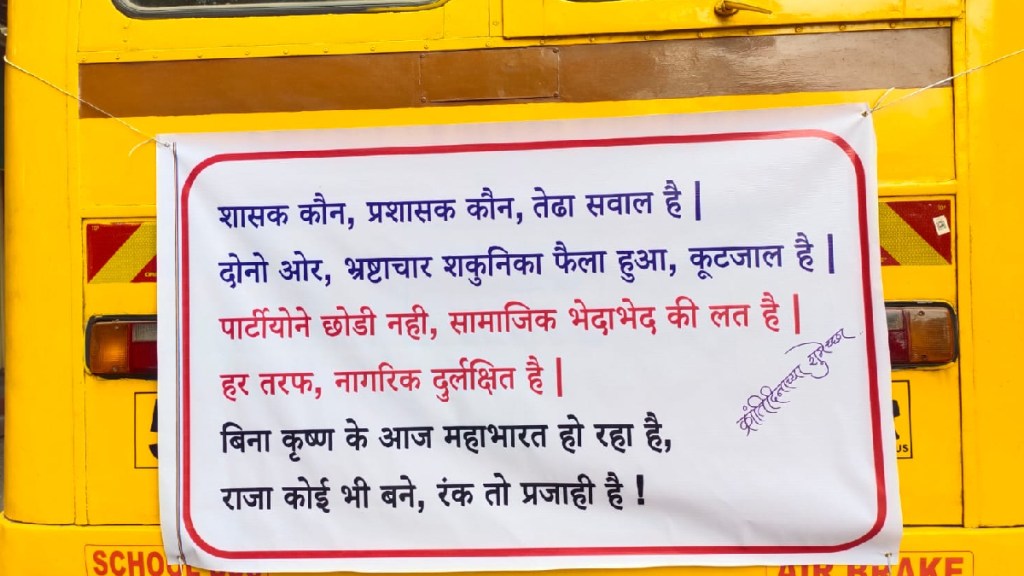 शासक कौन, प्रशासक कौन, तेढा सवाल है |
दोनो ओर, भ्रष्टाचार शकुनिका फैला हुआ, कूटजाल है |
पार्टीयोने छोडी नही, सामाजिक भेदाभेद की लत है |
हर तरफ, नागरिक दुर्लक्षित है |
बिना कृष्ण के आज महाभारत हो रहा है,
राजा कोई भी बने, रंक तो प्रजाही है !
क्रांतिदिनाच्या शुभेच्छा
SCHOOL BUS
AIR BRAKE